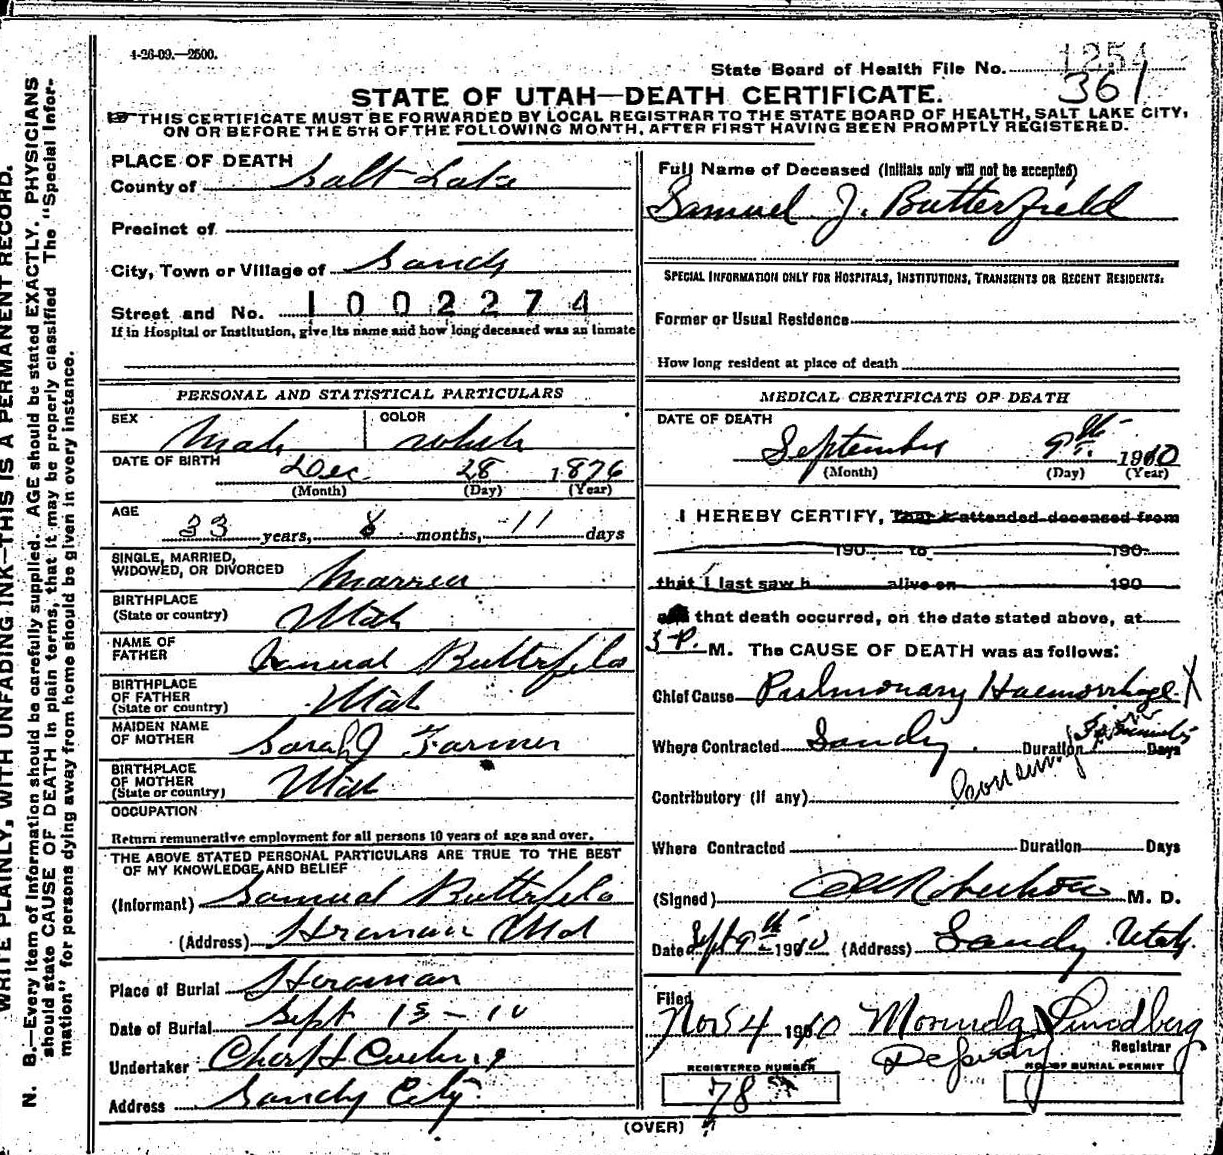 4-26-09.—2500.
State Board of Health File No. 1254
361
STATE OF UTAH—DEATH CERTIFICATE.
THIS CERTIFICATE MUST BE FORWARDED BY LOCAL REGISTRAR TO THE STATE BOARD OF HEALTH, SALT LAKE CITY,
ON OR BEFORE THE 5TH OF THE FOLLOWING MONTH, AFTER FIRST HAVING BEEN PROMPTLY REGISTERED.
WRITE PLAINLY, WITH UNFADING INK—THIS IS A PERMANENT RECORD.
N. B.—Every item of information should be carefully supplied. AGE should be stated EXACTLY. PHYSICIANS
should state CAUSE OF DEATH in plain terms, that it may be properly classified The "Special Infor-
mation" for persons dying away from home should be given in every instance.
PLACE OF DEATH
County of Salt Lake
Precinct of
City, Town or Village of Sandy
Street and No. 1002274
If in Hospital or Institution, give its name and how long deceased was an inmate
PERSONAL AND STATISTICAL PARTICULARS
SEX Male COLOR White
DATE OF BIRTH Dec. 28 1876
(Month) (Day) (Year)
AGE
33 years, 8 months, 11 days
SINGLE, MARRIED,
WIDOWED, OR DIVORCED Married
BIRTHPLACE
(State or country) Utah
NAME OF
FATHER Samuel Butterfield
BIRTHPLACE
OF FATHER
(State or country) Utah
MAIDEN NAME
OF MOTHER Sarah J Farmer
BIRTHPLACE
OF MOTHER
(State or country) Utah
OCCUPATION
Return remunerative employment for all persons 10 years of age and over.
THE ABOVE STATED PERSONAL PARTICULARS ARE TRUE TO THE BEST
OF MY KNOWLEDGE AND BELIEF
(Informant) Samuel Butterfield
(Address) Herriman Utah
Place of Burial Herriman
Date of Burial Sept 13 - 10
Undertaker
Address Sandy City
Full Name of Deceased (Initials only will not be accepted)
Samuel J. Butterfield
SPECIAL INFORMATION ONLY FOR HOSPITALS, INSTITUTIONS, TRANSIENTS OR RECENT RESIDENTS:
Former or Usual Residence
How long resident at place of death
MEDICAL CERTIFICATE OF DEATH
DATE OF DEATH
September 9th 1910
(Month) (Day) (Year)
I HEREBY CERTIFY, That I attended deceased from
190 to 190
that I last saw h alive on 190
and that death occurred, on the date stated above, at
3 P. M. The CAUSE OF DEATH was as follows:
Chief Cause Pulmonary Haemorrhage X
Where Contracted Sandy. Duration Days
Contributory (if any)
Where Contracted Duration Days
(Signed) Robertson M. D.
Date Sept 9th 1910 (Address) Sandy Utah
Filed
Nov 4 1910 Lundberg
Deputy Registrar
REGISTERED NUMBER
78
NO. OF BURIAL PERMIT
(OVER)